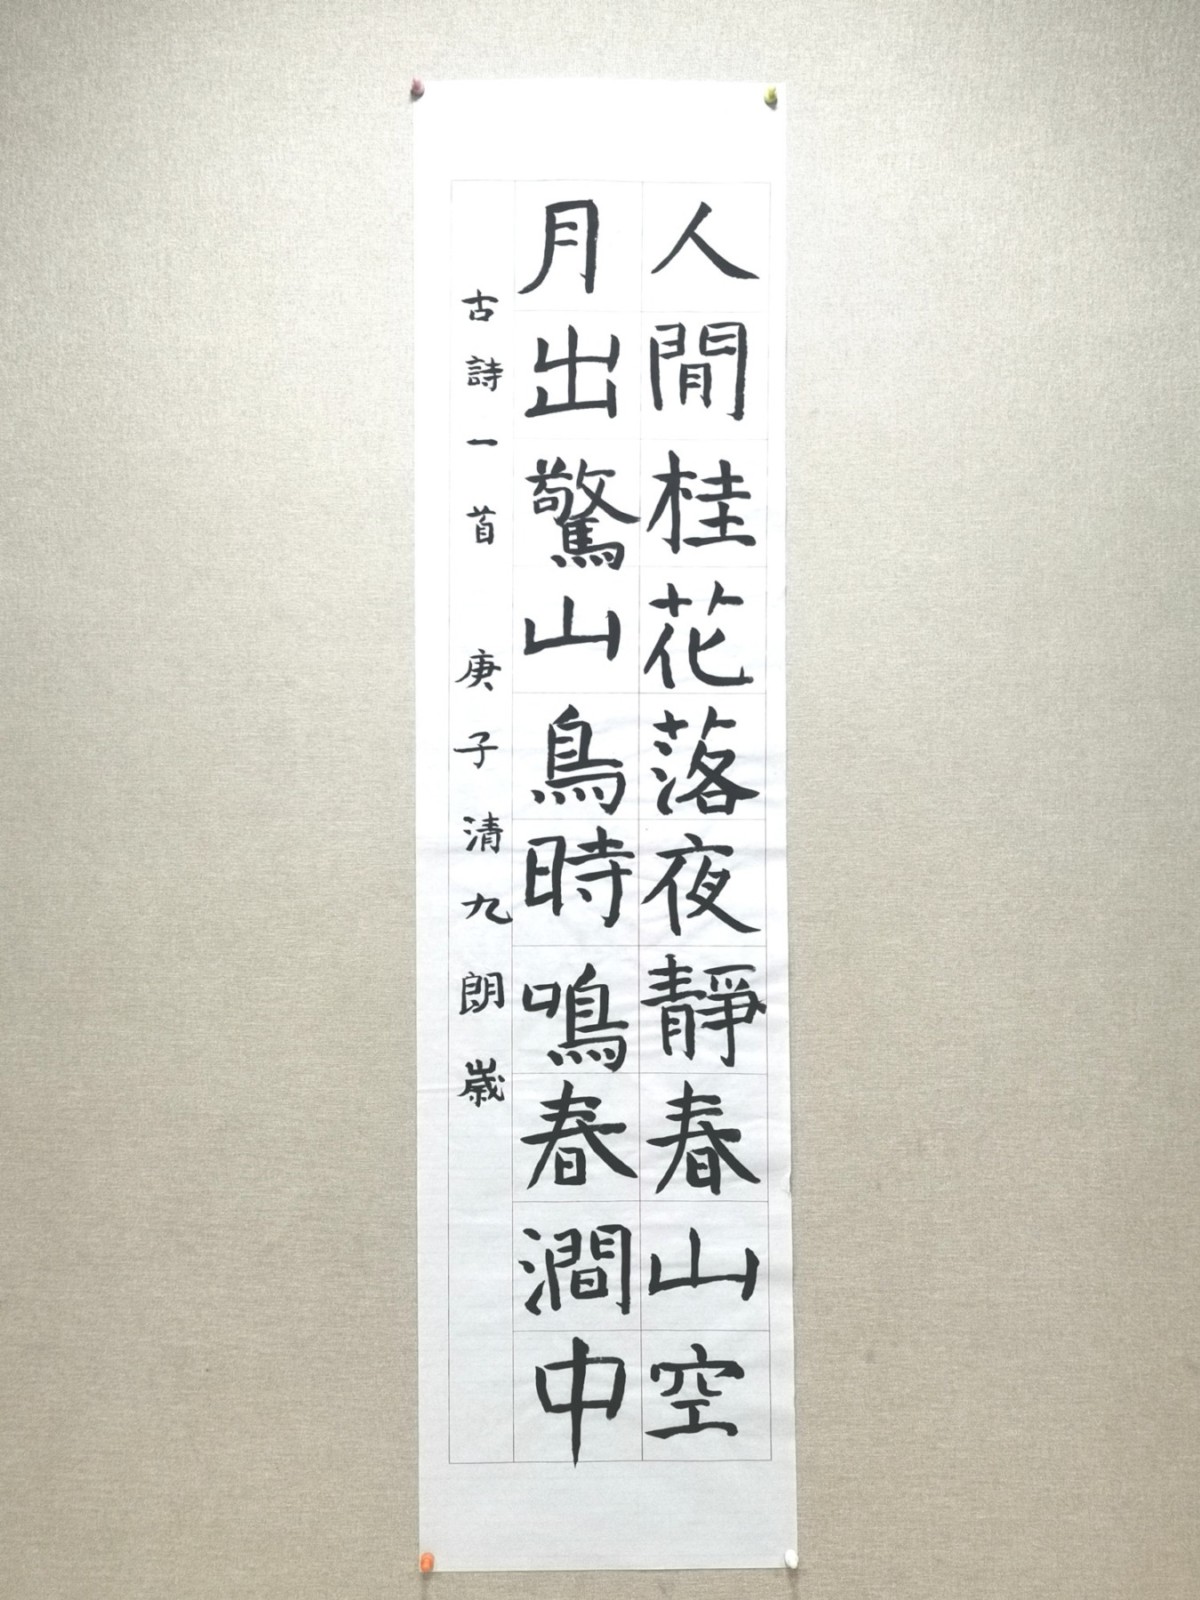 人閒桂花落夜靜春山空
月出驚山鳥時鳴春澗中
古詩一首 庚子清九朗歲